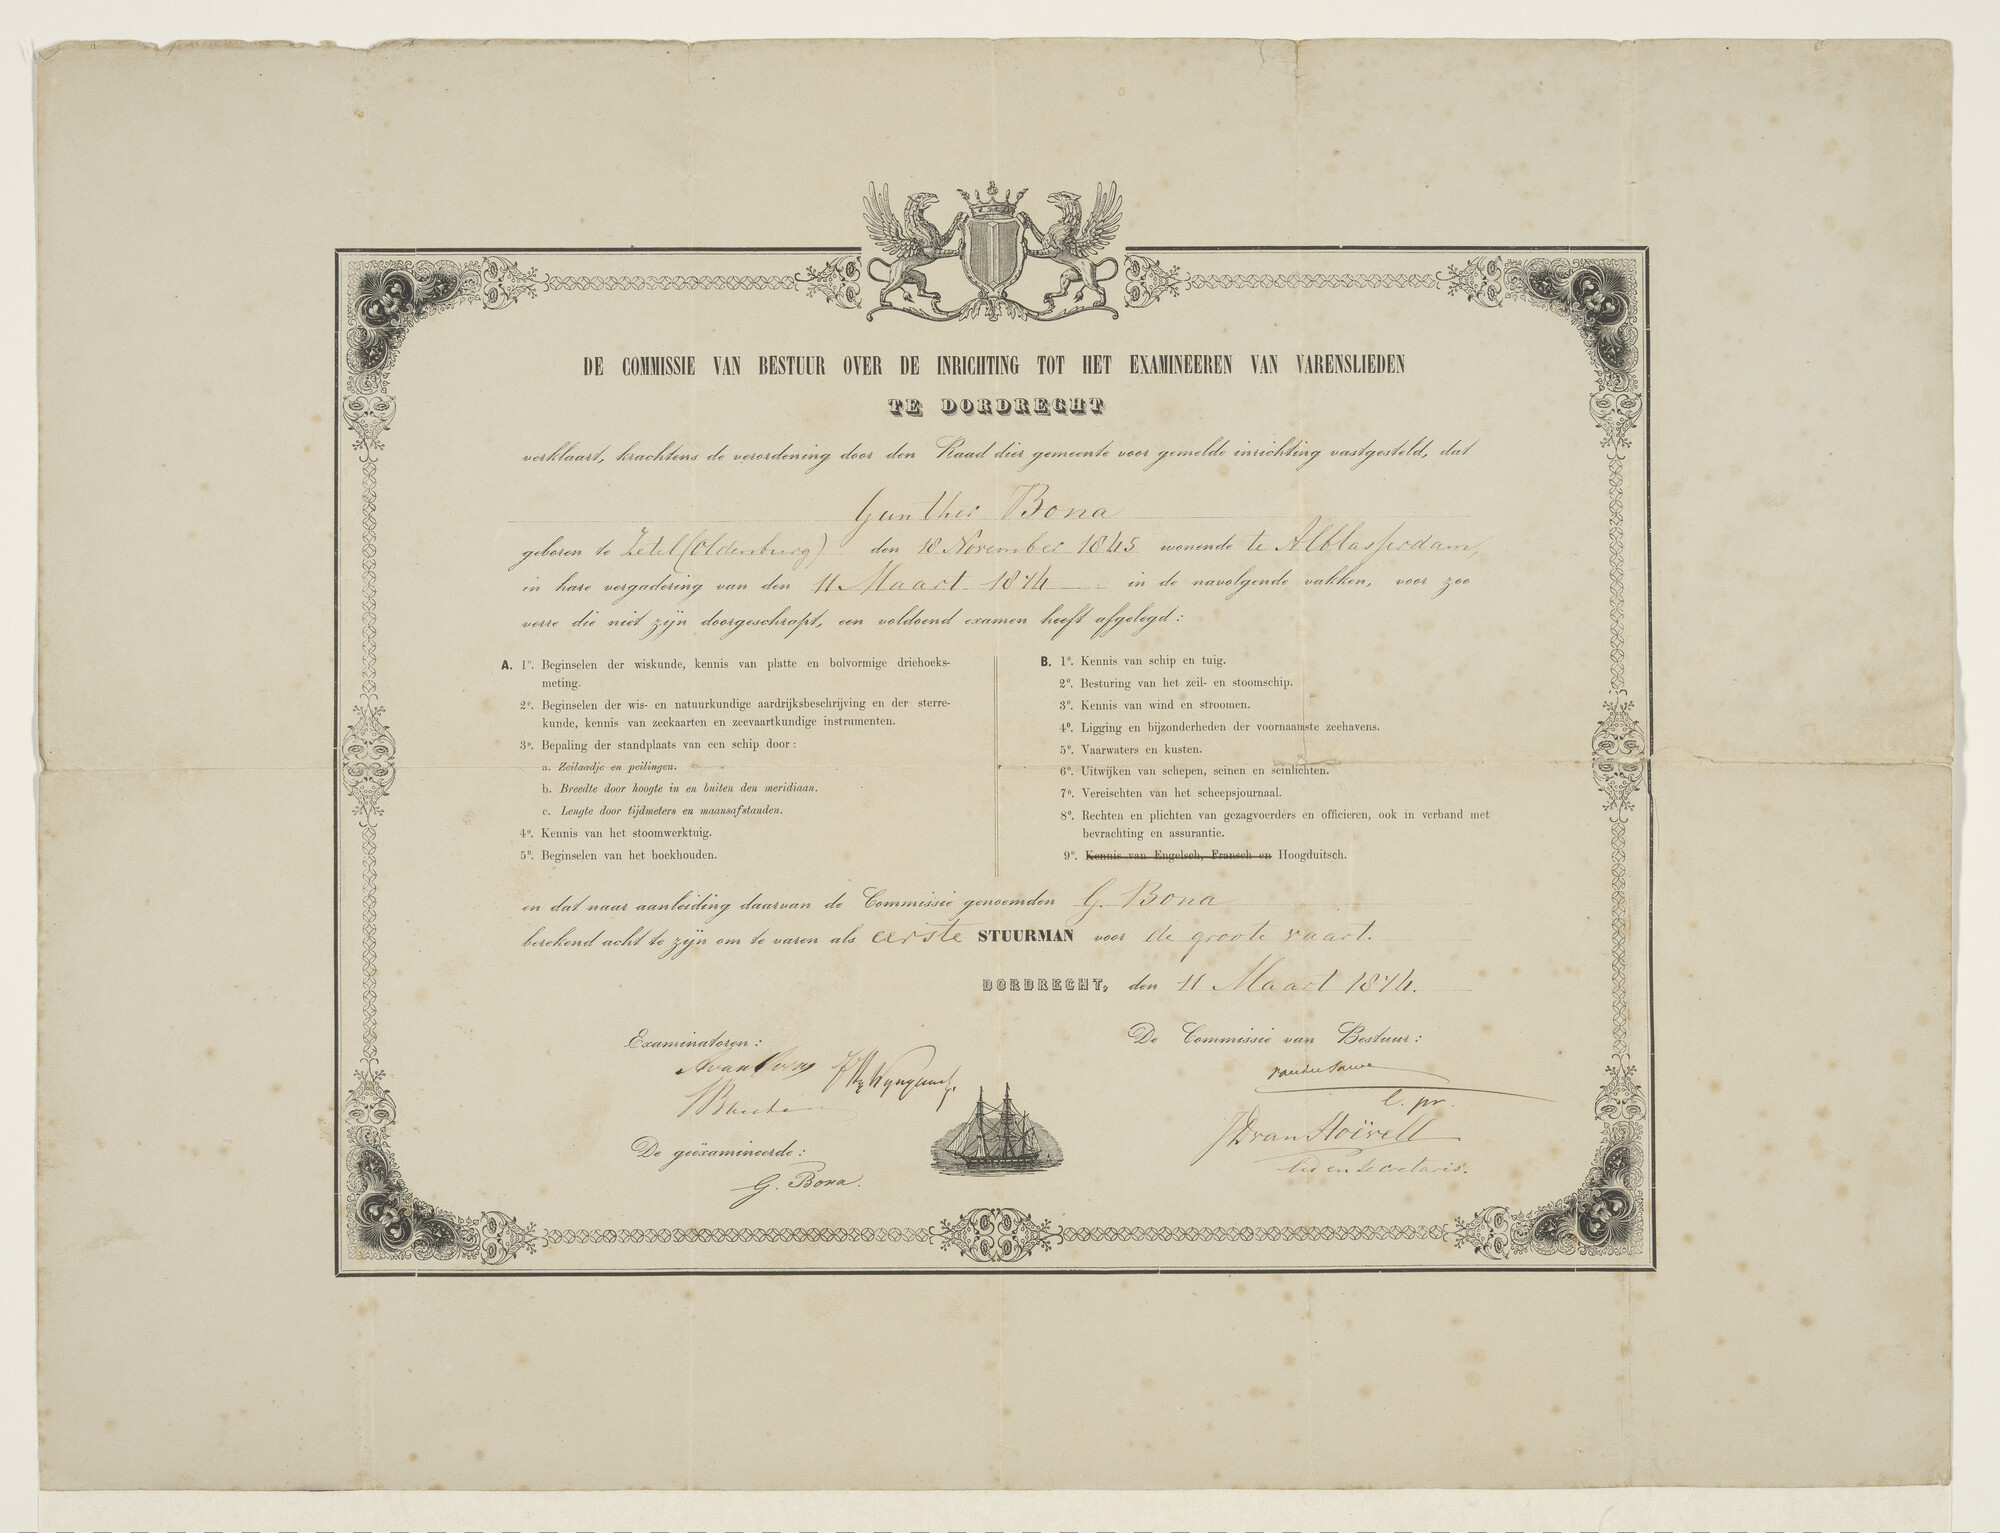 DE COMMISSIE VAN BESTUUR OVER DE INRICHTING TOT HET EXAMINEEREN VAN VARENSLIEDEN
TE DORDRECHT
verklaart, krachtens de verordening door den Raad dier gemeente voor gemelde inrichting vastgesteld, dat
Gunther Bona
geboren te Zetel (Oldenburg) den 18 November 1845 wonende te Alblasserdam,
in hare vergadering van den 11 Maart 1874 in de navolgende vakken, voor zoo
verre die niet zijn doorgeschrapt, een voldoend examen heeft afgelegd:
A. 1º. Beginselen der wiskunde, kennis van platte en bolvormige driehoeks-
meting.
2º. Beginselen der wis- en natuurkundige aardrijksbeschrijving en der sterre-
kunde, kennis van zeekaarten en zeevaartkundige instrumenten.
3º. Bepaling der standplaats van een schip door:
a. Zeilaadje en peilingen.
b. Breedte door hoogte in en buiten den meridiaan.
c. Lengte door tijdmeters en maansafstanden.
4º. Kennis van het stoomwerktuig.
5º. Beginselen van het boekhouden.
B. 1º. Kennis van schip en tuig.
2º. Besturing van het zeil- en stoomschip.
3º. Kennis van wind en stroomen.
4º. Ligging en bijzonderheden der voornaamste zeehavens.
5º. Vaarwaters en kusten.
6º. Uitwijken van schepen, seinen en seinlichten.
7º. Vereischten van het scheepsjournaal.
8º. Rechten en plichten van gezagvoerders en officieren, ook in verband met
bevrachting en assurantie.
9º. Kennis van Engelsch, Fransch en Hoogduitsch.
en dat naar aanleiding daarvan de Commissie genoemden G. Bona
berekend acht te zijn om te varen als eerste STUURMAN voor de groote vaart.
DORDRECHT, den 11 Maart 1874.
Examinatoren:
De geëxamineerde:
G. Bona.
De Commissie van Bestuur:
l. pr.
JD van Hoëvell
lid en secretaris.